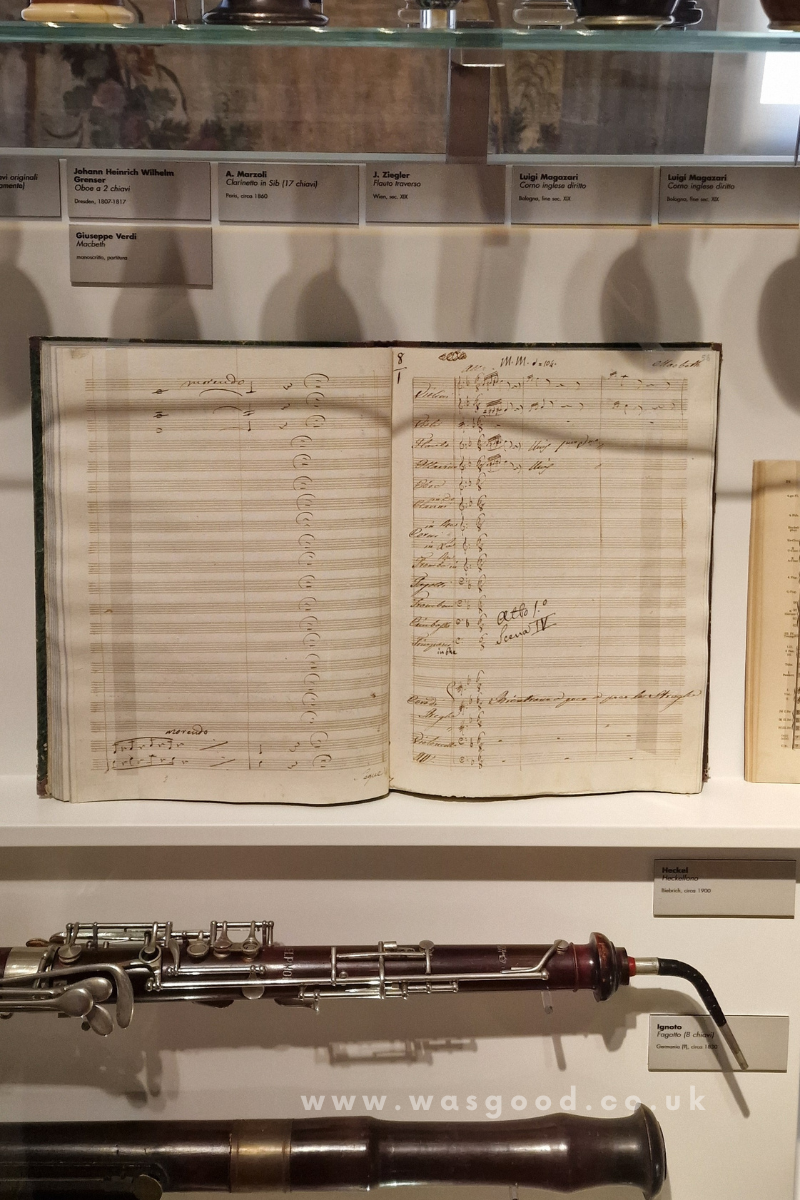 avi originali
amente)
Johann Heinrich Wilhelm
Grenser
Oboe a 2 chiavi
Dresden, 1807-1817
A. Marzoli
Clarinetto in Sib (17 chiavi)
Paris, circa 1860
J. Ziegler
Flauto traverso
Wien, sec. XIX
Luigi Magazari
Corno inglese diritto
Bologna, fine sec. XIX
Luigi Magazari
Corno inglese diritto
Bologna, fine sec. XIX
Giuseppe Verdi
Macbeth
manoscritto, partitura
morendo
8
1
M.M.
Macbeth
Violini
Viole
Flauto
Ottavino
Oboe
Clarini
Corni
Trombe in
Fagotti
Tromboni
Cimbasso
Timpani
in
Atto 1.o
Scena IV
Streghe
Violoncelli
morendo
segue
Heckel
Heckelfono
Biebrich, circa 1900
Ignoto
Fagotto (8 chiavi)
Germania (?), circa
www.wasgood.co.uk